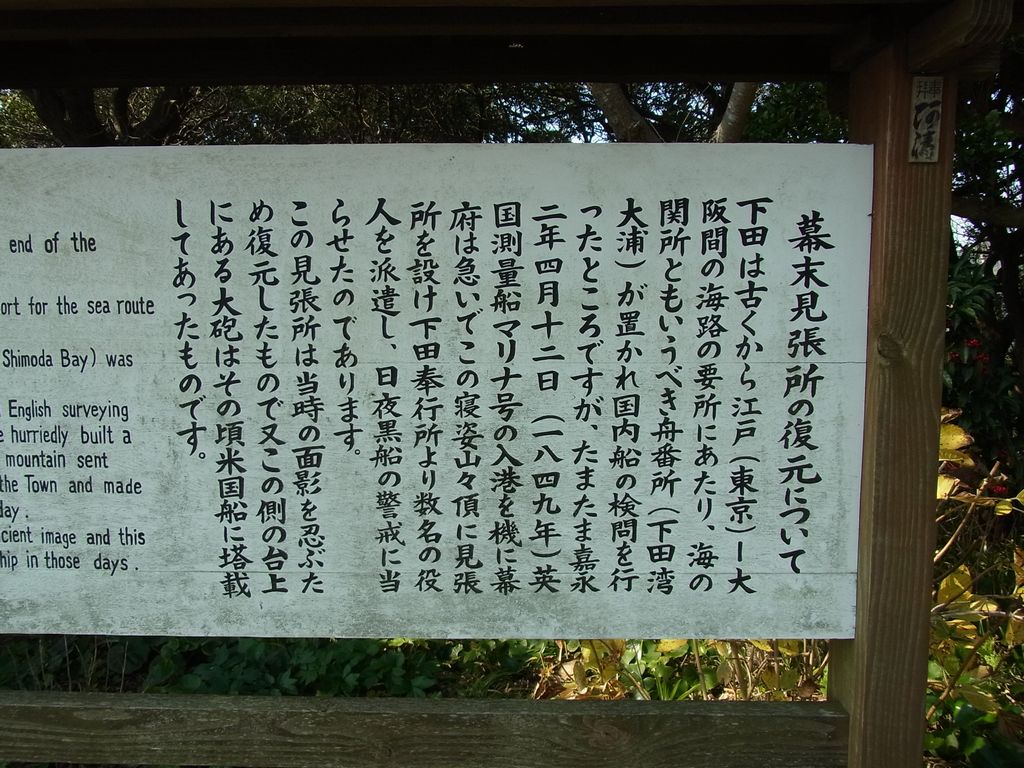 幕末見張所の復元について
下田は古くから江戸（東京）ー大
阪間の海路の要所にあたり、海の
関所ともいうべき舟番所（下田湾
大浦）が置かれ国内船の検問を行
ったところですが、たまたま嘉永
二年四月十二日（一八四九年）英
国測量船マリナ号の入港を機に幕
府は急いでこの寝姿山々頂に見張
所を設け下田奉行所より数名の役
人を派遣し、日夜黒船の警戒に当
らせたのであります。
この見張所は当時の面影を忍ぶた
め復元したもので又この側の台上
にある大砲はその頃米国船に塔載
してあったものです。
end of the
ort for the sea route
Shimoda Bay) was
English surveying
e hurriedly built a
mountain sent
the Town and made
day.
cient image and this
hip in those days.